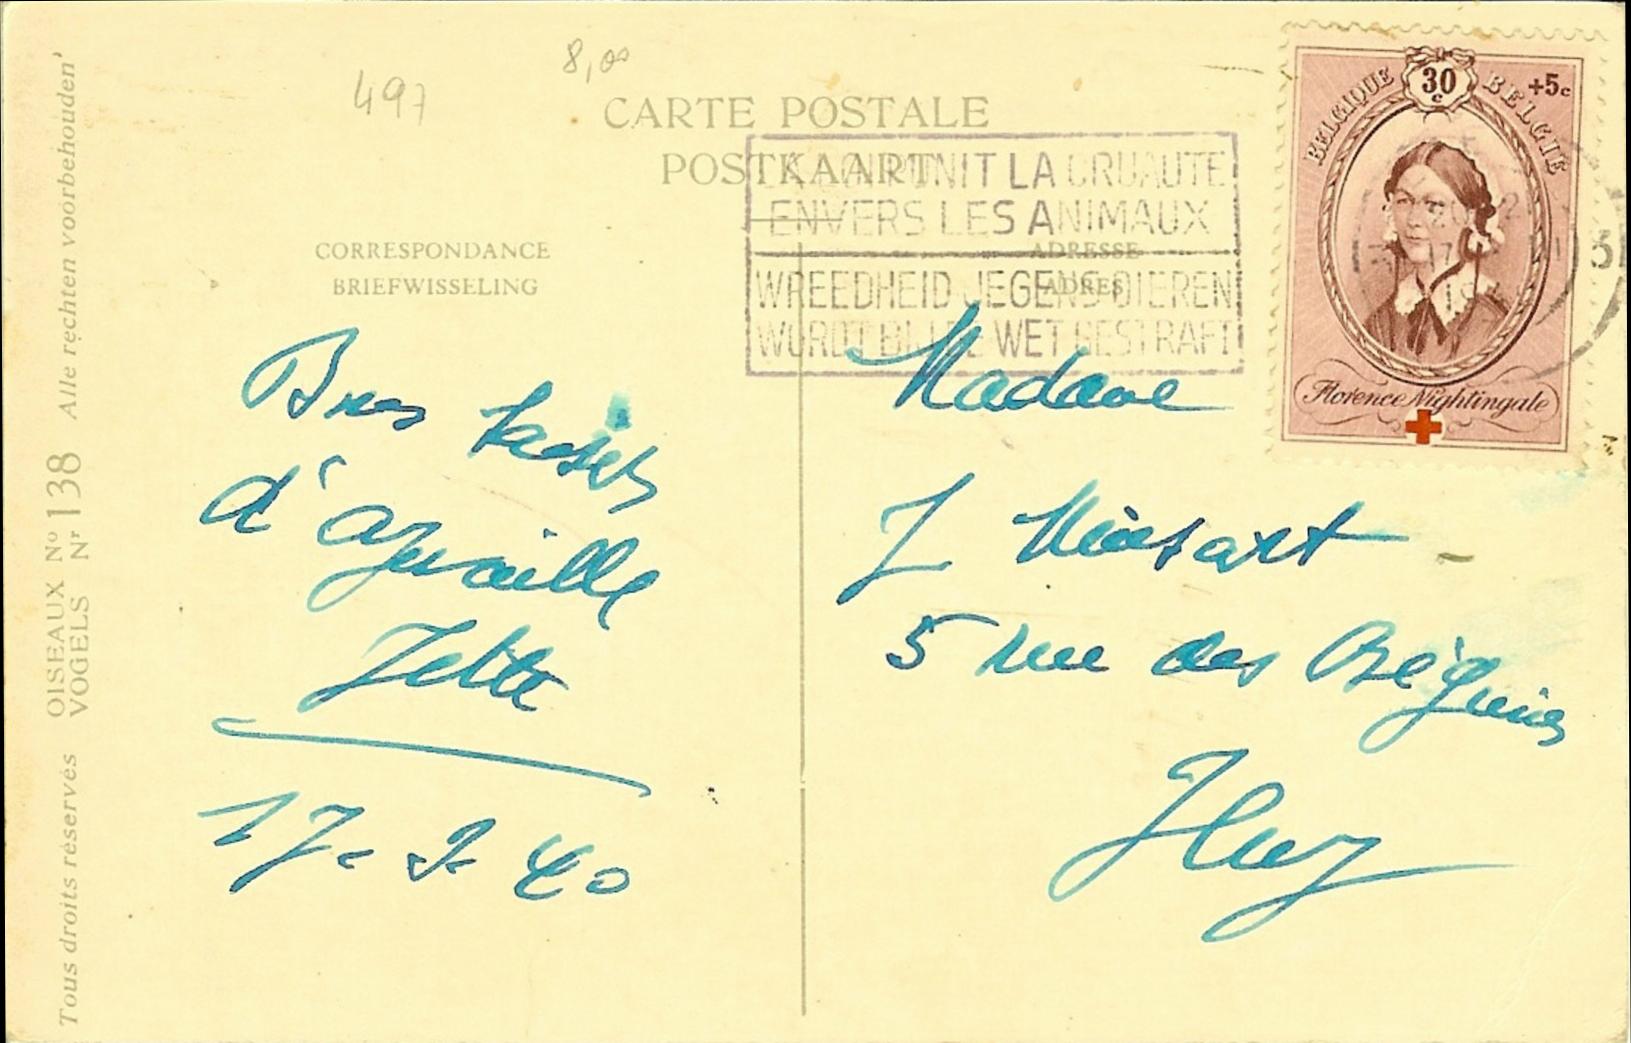 497
8,00
CARTE POSTALE
POSTKAART
LA LOI PUNIT LA CRUAUTE
ENVERS LES ANIMAUX
WREEDHEID JEGENS DIEREN
WORDT BIJ DE WET GESTRAFT
BELGIQUE 30 c BELGIE +5c
Florence Nightingale
CORRESPONDANCE
BRIEFWISSELING
ADRESSE
ADRES
Bons baisers
d'
Jette
17-2-40
Madame
J
5 rue des Béguines
Huy
Tous droits réservés OISEAUX No 138 Alle rechten voorbehouden
VOGELS Nr